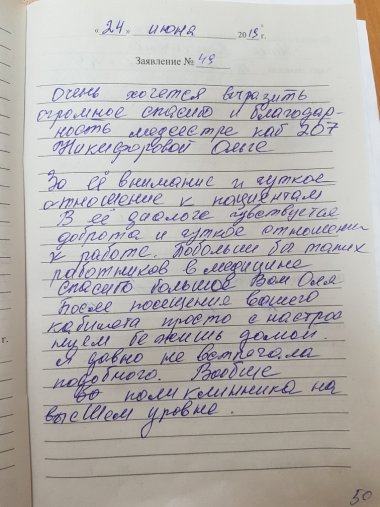 «24» июня 2019 г.
Заявление № 49
Очень хочется выразить
огромное спасибо и благодар-
ность медсестре каб 207
Никифоровой Ольге
За её внимание и чуткое
отношение к пациентам
В её диалоге чувствуется
доброта и чуткое отношение
к работе. Побольше бы таких
работников в медицине
Спасибо большое Вам Оля
После посещения вашего
кабинета просто с настрое
нием бежишь домой.
Я давно не встречала
подобного. Вообще
во поликлинника на
высшем уровне.
г.
50